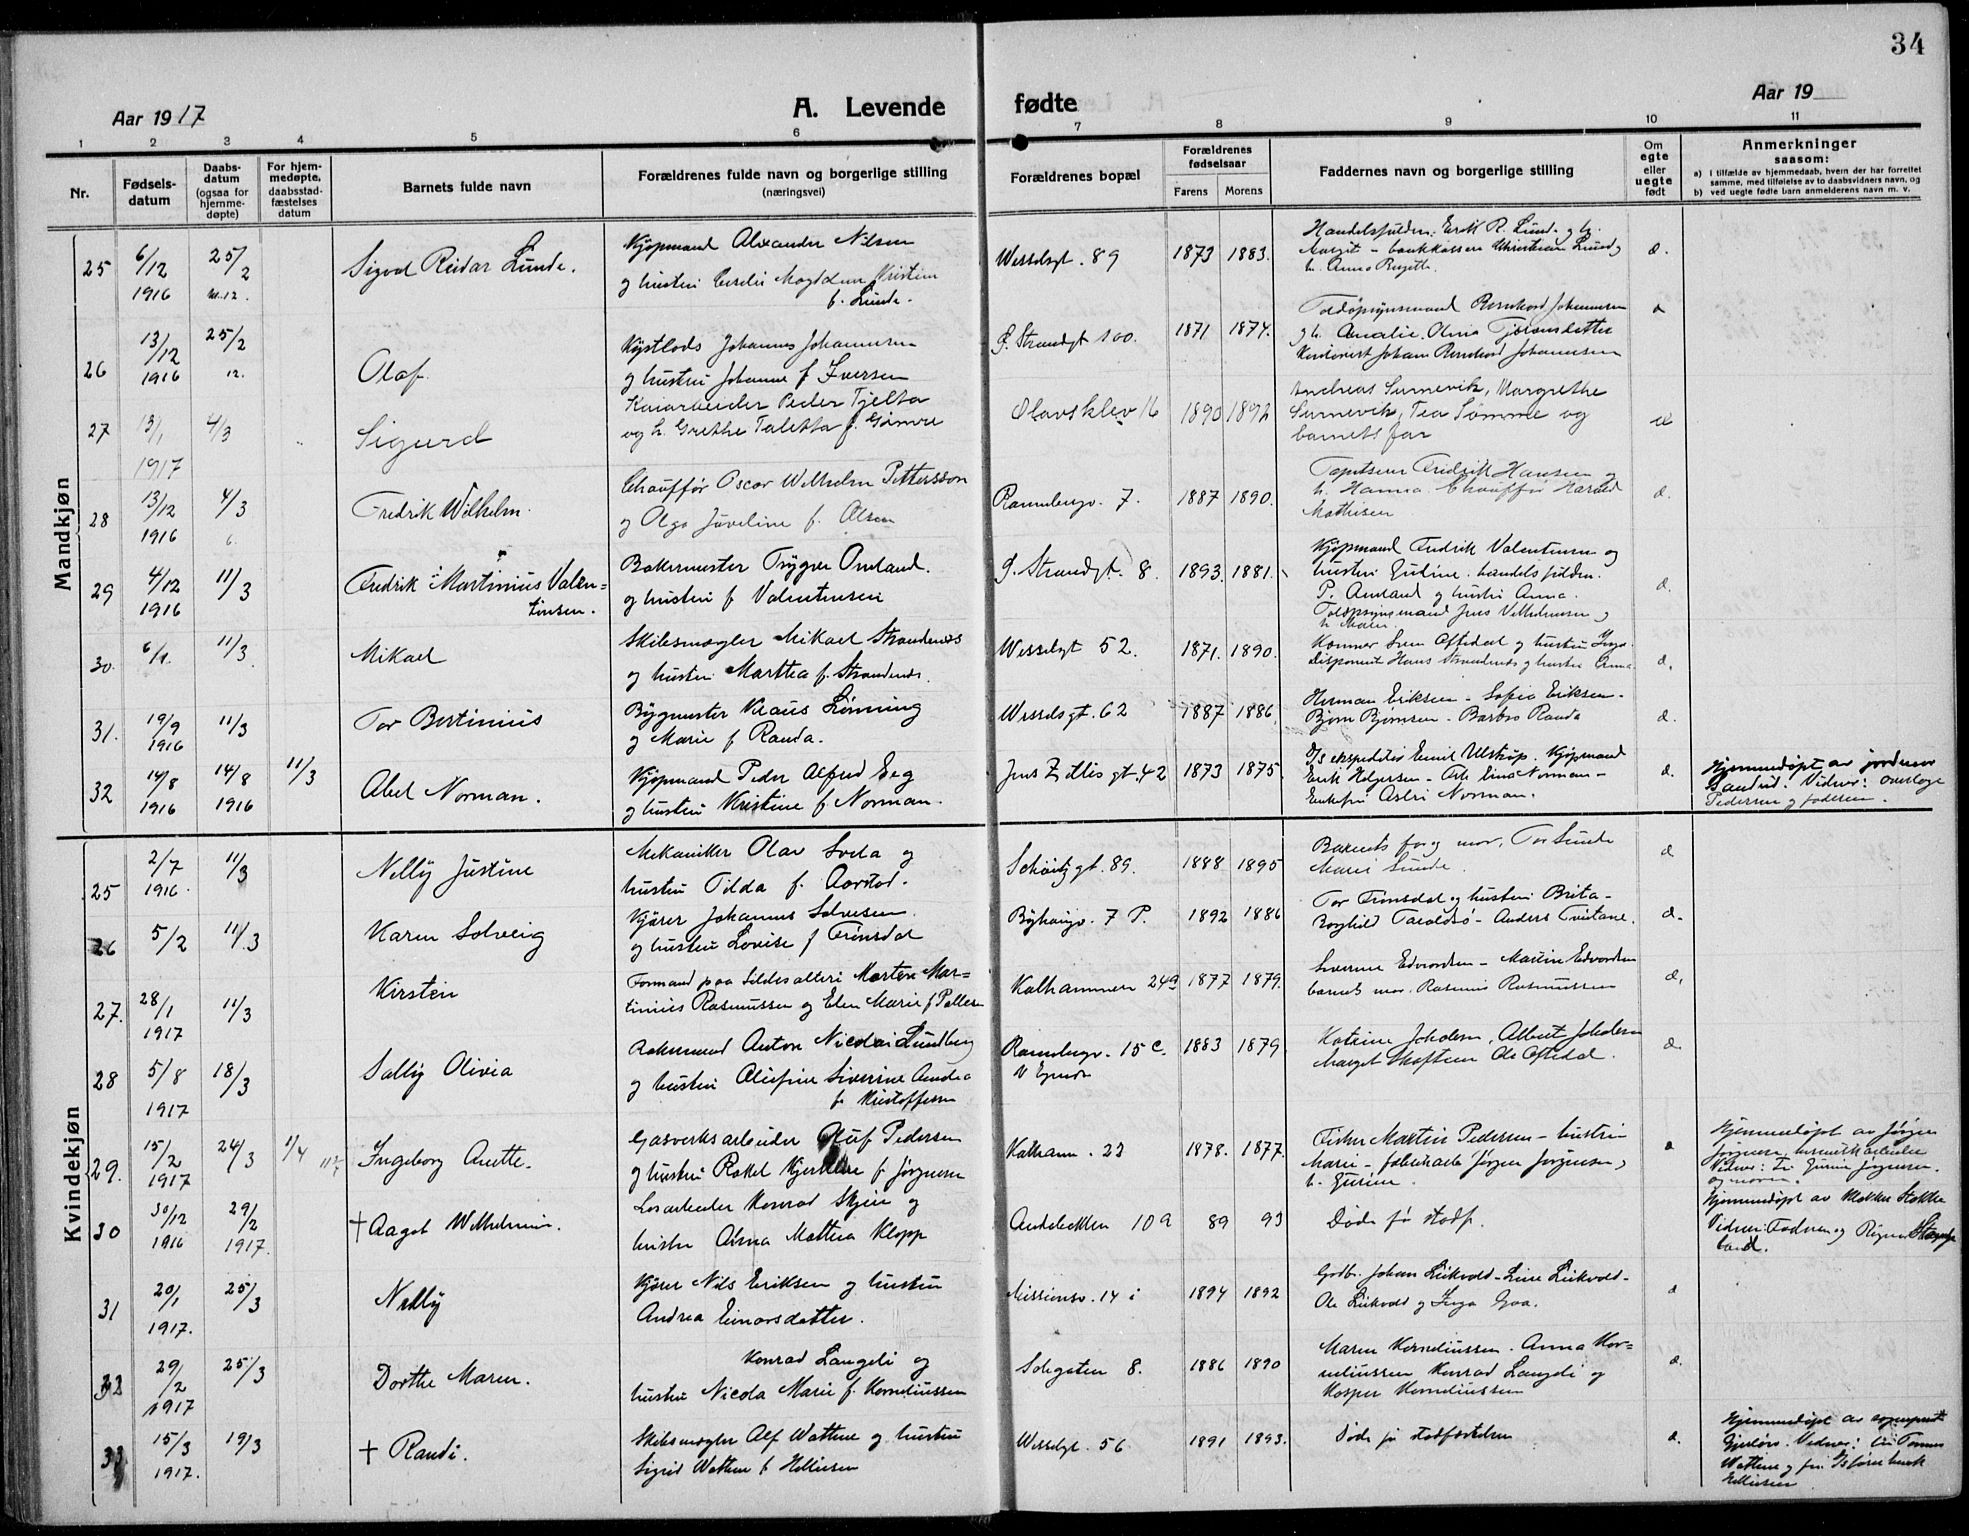 34
Aar 1917
A. Levende fødte
Aar 19
1 2 3 4 5 6 7 8 9 10 11
Nr.
Fødsels-
datum
Daabs-
datum
(ogsaa for
hjemme-
døpte)
For hjem-
medøpte,
daabsstad-
fæstelses
datum
Barnets fulde navn
Forældrenes fulde navn og borgerlige stilling
(næringsvei)
Forældrenes bopæl
Forældrenes
fødselsaar
Farens Morens
Faddernes navn og borgerlige stilling
Om
egte
eller
uegte
født
Anmerkninger
saasom:
a) i tilfælde av hjemmedaab, hvem der har forrettet
samme, med tilføielse av to daabsvidners navn, og
b) ved uegte fødte barn anmelderens navn m. v.
Mandkjøn
25 6/12 1916 25/2 Sigval Reidar Lunde.
Kjøpmand Alexander Nilsen
og hustru Magdalene Kristine
f. Lunde.
Wesselsgt. 89 1873 1883.
26 13/12 1916 25/2 Olaf.
Kystlods Johannes Johannesen
og hustru Johanne f Iversen
Ø. Strandgt 100. 1871 1874.
Toldopsynsmand Bernhard Johannesen
og h. Amalie. Tjøransdatter
Johan Bernhard Johannesen
27 13/1 1917 4/3 Sigurd
Kaiarbeider Peder Tjelta
og h. Grethe Taletta f. Gimre
Olavsklev 16 1890 1892
Andreas Sunnevik, Margrethe
Sunnevik, Tea Sømme og
barnets far
28 13/12 1916 4/3 Fredrik Wilhelm.
Chauffør Oscar Wilhelm Pettersson
og Olga Juveline f. Olsen
Ramsbergv. 7. 1887 1890.
Fredrik Hansen og
h. Hanna. Chauffør Harald
Mathisen
29 4/12 1916 11/3 Fredrik Martinius Valen-
tinsen.
Bakermester Trygve Omland.
og hustru f Valentinsen
Ø. Strandgt. 8. 1893. 1881.
Kjøpmand Fredrik Valentinsen og
hustru Gurine. handelsfuldm.
P. Omland og hustru Anna.
Toldopsynsmand Jens Vilhelmsen og
h. Maren
30. 11/3 Mikael
Skibsmægler Mikael Strandenæs
og hustru Marthea f. Strandenæs.
Wesselsgt 52. 1871. 1890.
Sven Oftedal og hustru Inga.
Disponent Hans Strandenæs og hustru Anna
31. 19/9 1916 11/3 Tor Bertinius
Bygmester Klaus Lønning
og Marie f Randa.
Wesselsgt. 62 1887 1886
Herman Eriksen - Sofia Eriksen -
Bjørn Bjørnsen - Barbro Randa
32 14/8 1916 14/8 1916 11/3 Abel Norman.
Kjøpmand Peder Alfred Eeg
og hustru Kristine f Norman.
Jens Zetlis gt. 42 1873 1875.
D/s ekspeditør Emil Ulstrup. Kjøpmand
Erik Holgersen - Norman -
Enkefru Astri Norman.
Hjemmedøpt av jordmor
Sandvid. Vidner: overlæge
Pedersen og faderen.
Kvindekjøn
25 2/7 1916. 11/3 Nelly Justine
Mekaniker Olav Svela og
hustru Tilda f. Aarstad.
Schøitzgt. 89. 1888 1895
Barnets far og mor, Tor Lunde
Marie Lunde.
26 5/2 11/3 Karen Solveig
Kjører Johannes Salvesen.
og hustru Lovise f Trønsdal
Byhaugv. 7 P. 1892 1886
Tor Trønsdal og hustru Brita -
Borghild Taraldsø - Anders Tveitane.
27. 28/1 1917 11/3 Kirsten
Formand paa Sildesalteri Morten Mar-
tinius Rasmussen og Elen Marie f Pallesen
Kalhammeren 24a 1877 1879.
Severine Edvardsen - Martin Edvardsen
barnets mor. Rasmus Rasmussen
28 5/8 1917 18/3 Sally Olivia
Anton Nicolai Lundberg
og hustru Severine Andrea
f. Kristoffersen
Ramsbergv. 15 c. 1883 1879.
Katrine Jakobsen, Albert Jakobsen
Marget Skoftun Ole Oftedal.
29. 15/2 1917 24/3 1/4 Ingeborg Anette.
Gasverksarbeider Oluf Pedersen
og hustru Rakel f Jørgensen
Kalham. 23 1878. 1877.
Fisker Martin Pedersen - hustru
Marie - fabrikarb. Jørgen Jørgensen,
h. Gurine.
Hjemmedøpt av Jørgen
Jørgensen
Vidner: Fr. Gurine Jørgensen.
og moren.
30 30/12 1916 29/2 1917. † Aagot Wilhelmine.
Losarbeider Konrad Skjeie og
hustru Alma Mathea Klopp
Andebakken 10a 89 93
Døde før stadf.
Hjemmedøpt av klokker Stokka
Vidner: Faderen og Ragna
land.
31 20/1 1917. 25/3 Nelly
Kjører Nils Eriksen og hustru
Andrea Einarsdatter.
Missionsv. 14 i 1894 1892
Gaardbr. Johan Liikvold - Line Liikvold -
Ole Liikvold og Inga Goa.
32 29/2 1917 25/3 Dorthe Maren.
Konrad Langeli og
hustru Nicola Marie f. Korneliussen
Solegaten 8. 1886 1890
Maren Korneliussen. Anna Kor-
neliussen Konrad Langeli og
Kasper Korneliussen
33 15/3 1917. 19/3 † Randi.
Skibsmægler Alf Wattne og hustru
Sigrid Wattne f Helliesen
Wesselsgt. 56 1891 1893.
Døde før stadfæstelsen
Hjemmedøpt av sogneprest
Gjerløw. Vidner: fru Tomine
Wattne og fru
Helliesen